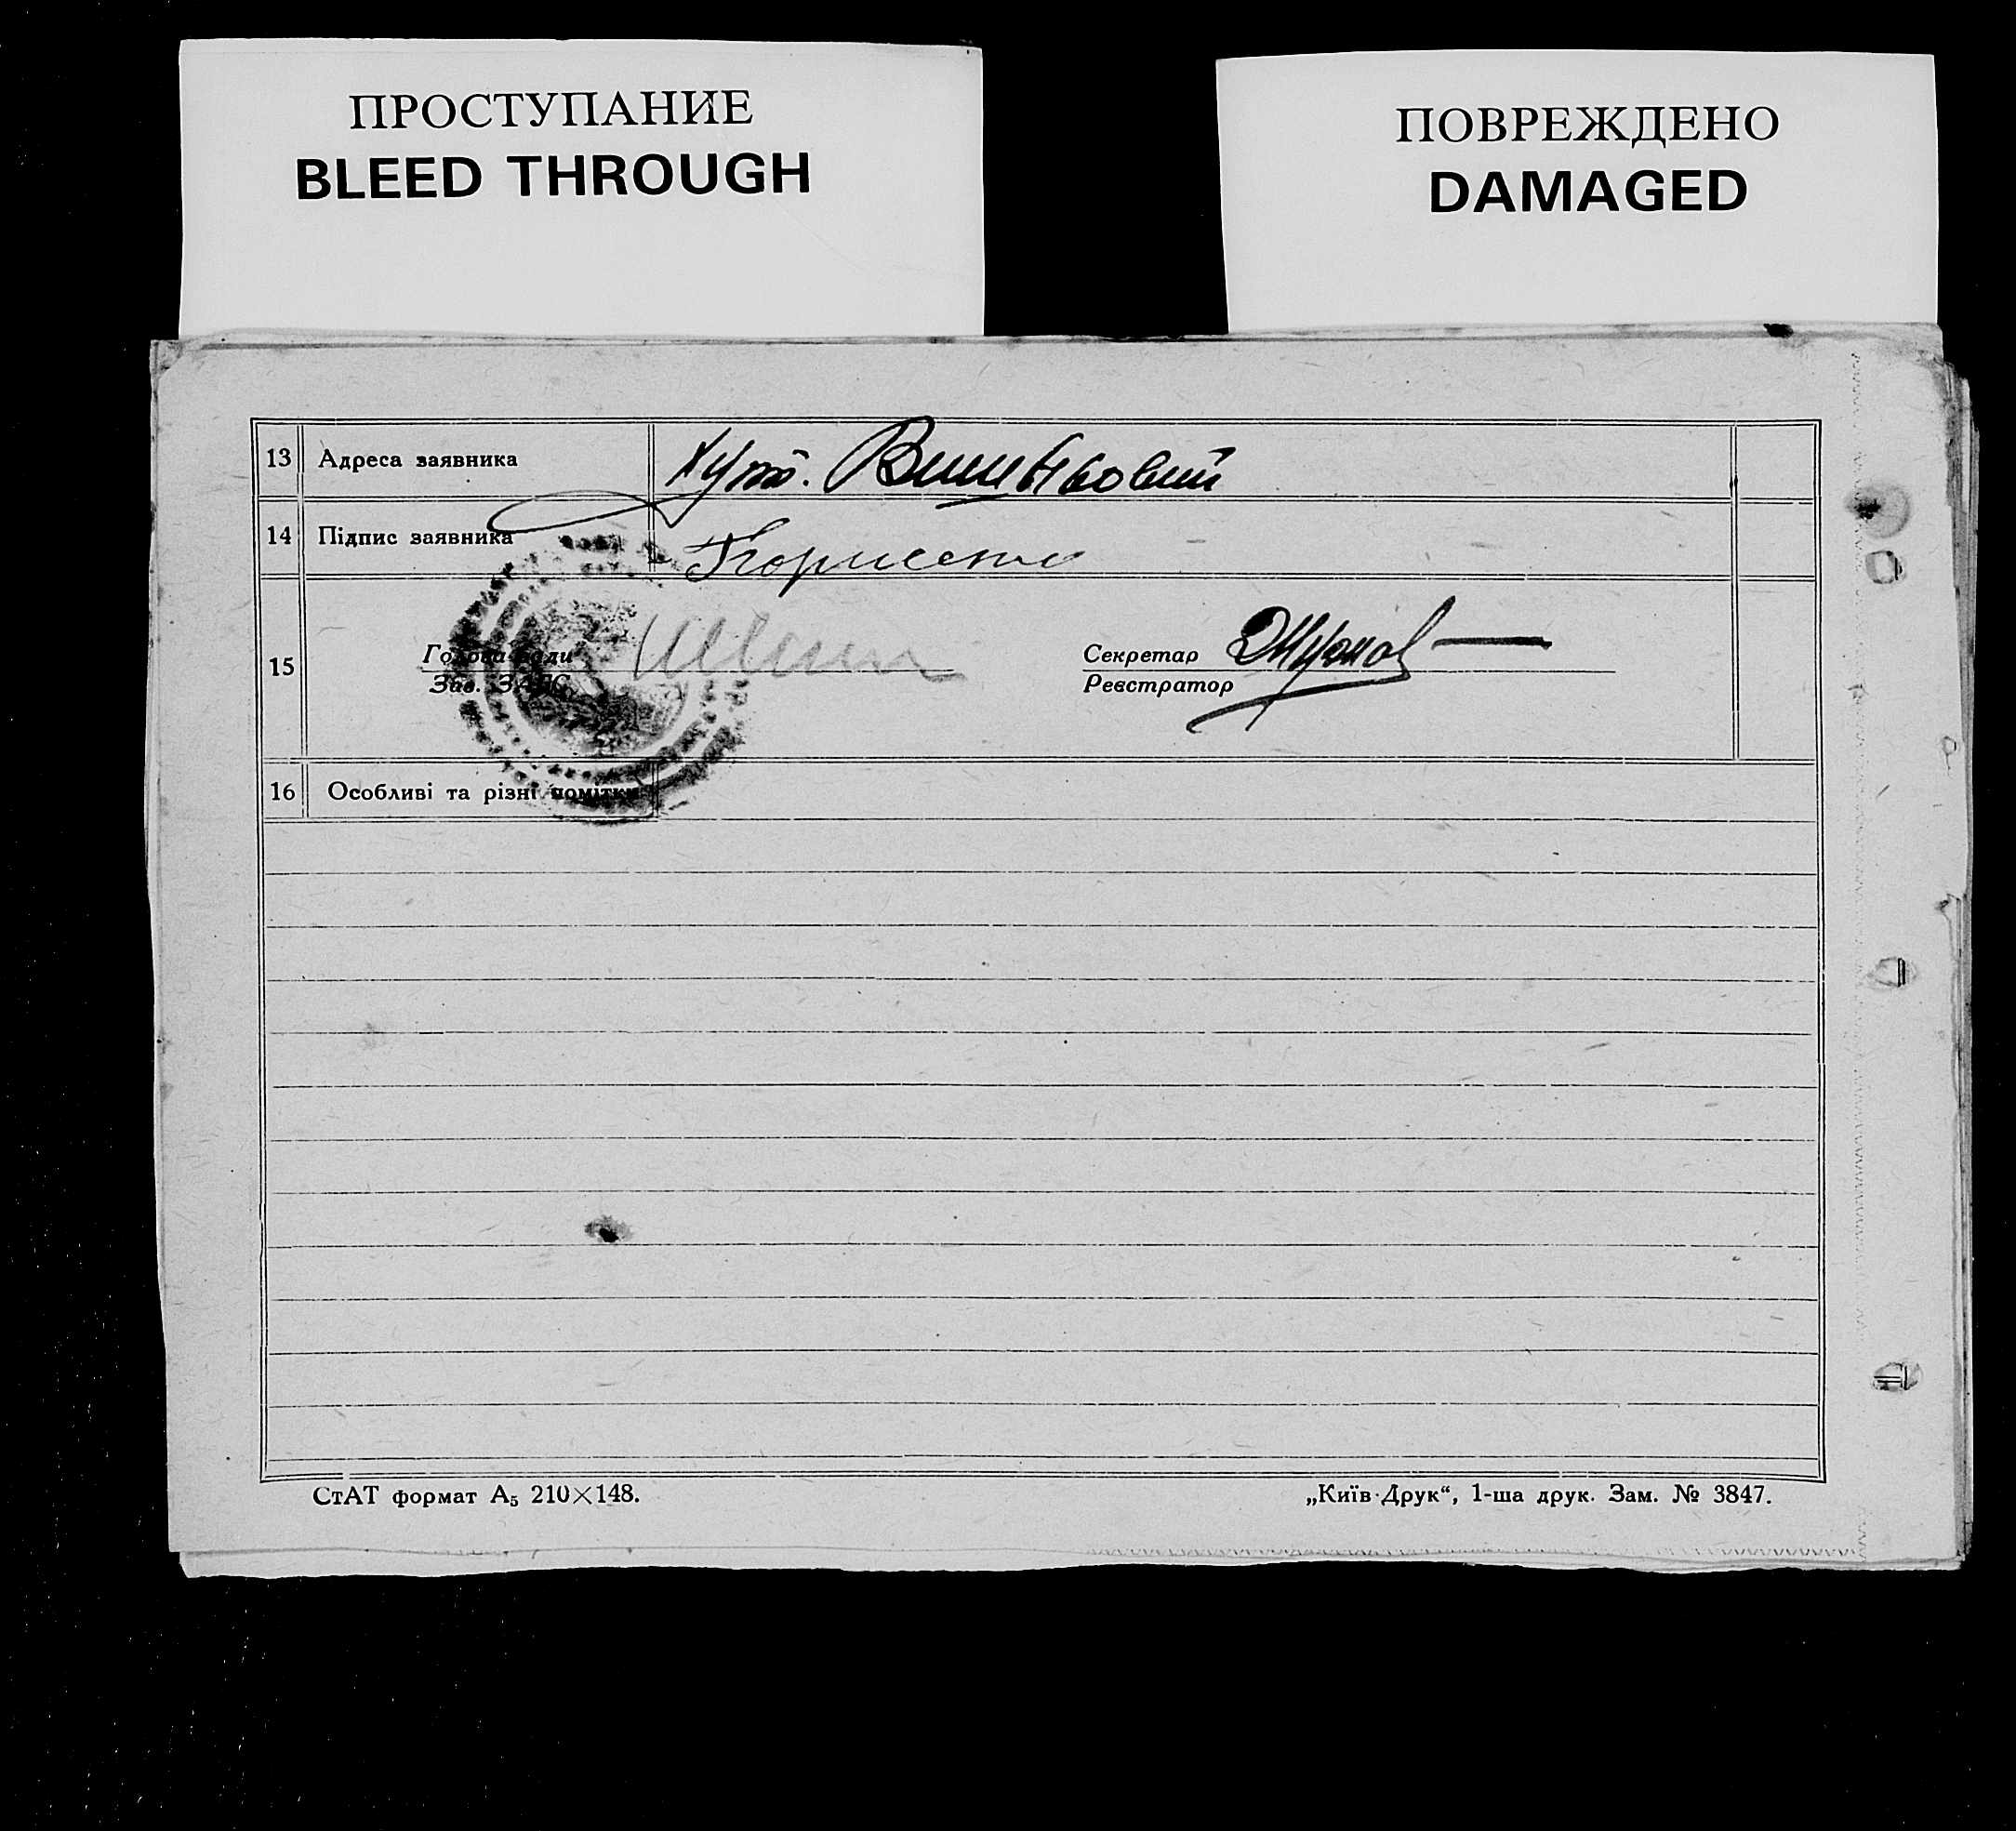 ПРОСТУПАНИЕ
BLEED THROUGH
ПОВРЕЖДЕНО
DAMAGED
13 Адреса заявника Хут.
14 Підпис заявника
15 Голова Ради
Зав. ЗАГС
Секретар
Реєстратор
16 Особливі та різні помітки
СтАТ формат А5 210×148.
„Київ-Друк“, 1-ша друк. Зам. № 3847.